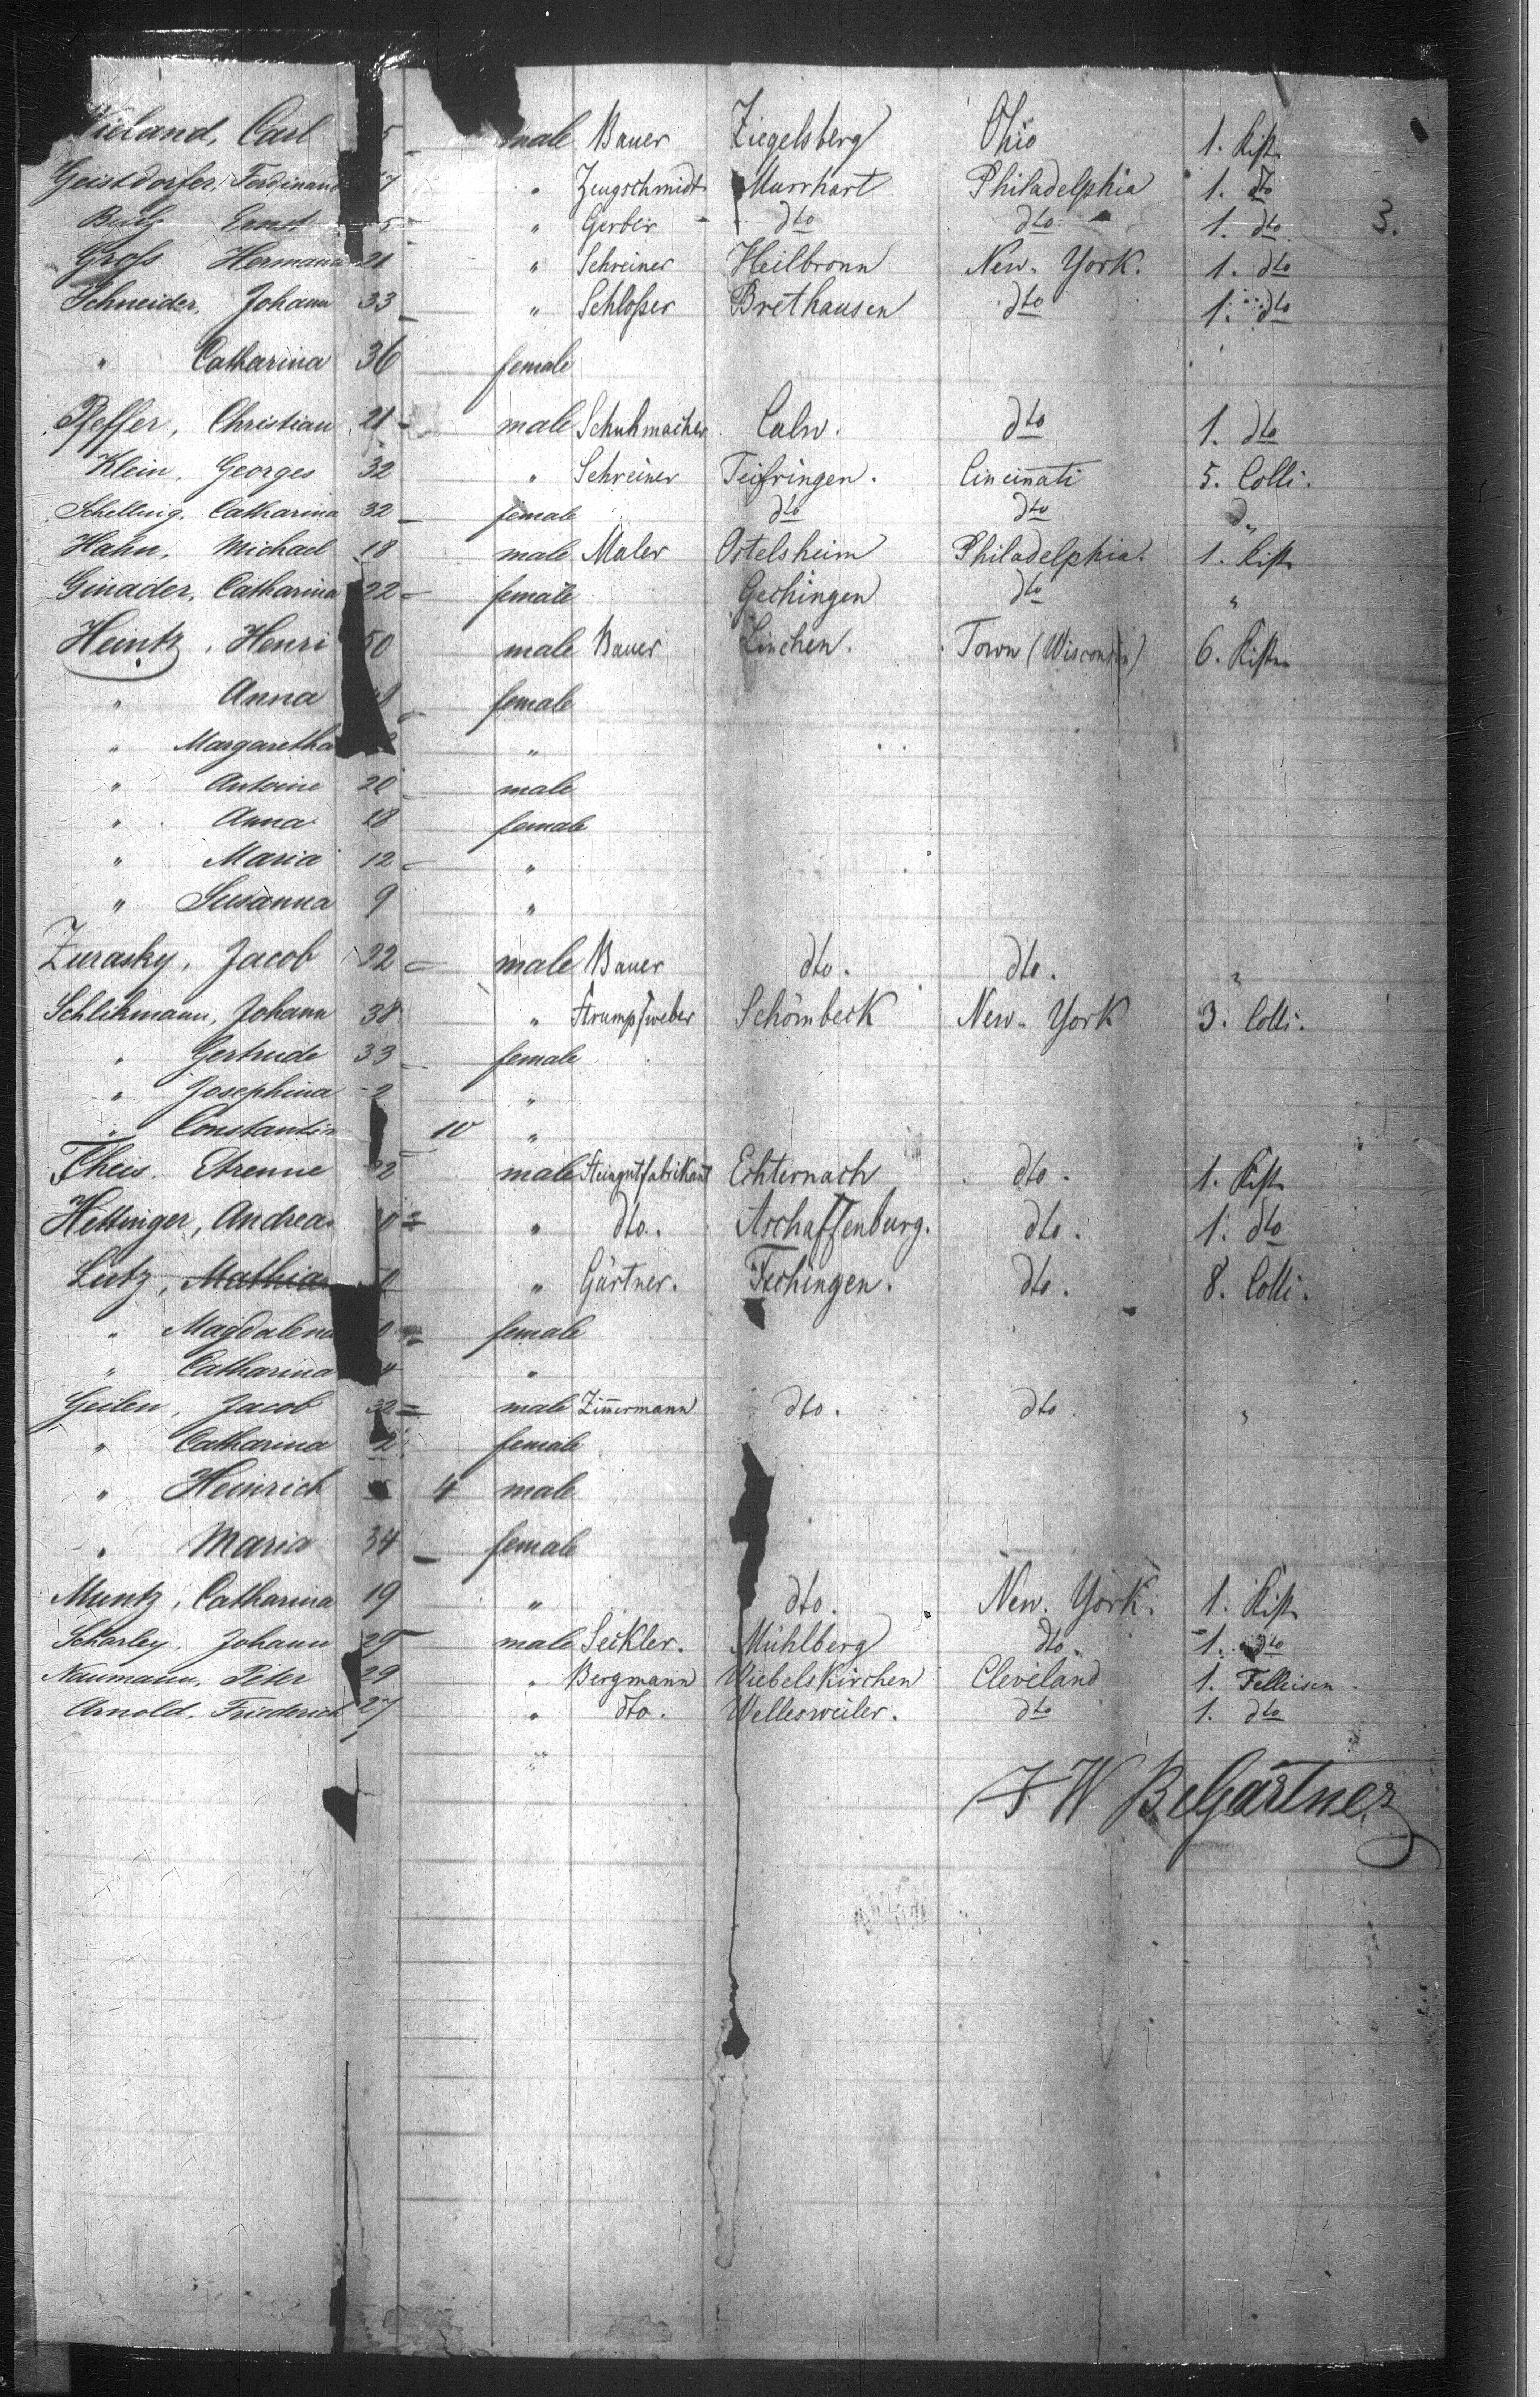 Wieland, Carl 5 male Bauer Ziegelsberg Ohio 1. Kist.
Geistdorfer, Ferdinand 7 " Zeugschmidt Murrhart Philadelphia 1. dto
Ernst 5 " Gerber dto dto 1. dto 3.
Groß Hermann 21 " Schreiner Heilbronn New-York. 1. dto
Schneider, Johann 33 " Schloßer Brethausen dto 1. dto
" Catharina 36 female
Pfeffer, Christian 21 male Schuhmacher Calw. dto 1. dto
Klein, Georges 32 " Schreiner Teifringen. Cincinnati 5. Colli.
Schelling, Catharina 32 female dto dto d"
Hahn, Michael 18 male Maler Ostelsheim Philadelphia. 1. Kist.
Ginader, Catharina 22 female Gechingen dto "
Heintz, Henri 50 male Bauer Linchen. Town (Wisconsin) 6. Kisten
" Anna 8 female
" Margaretha "
" Antoine 20 male
" Anna 18 female
" Maria 12 "
" Susanna 9 "
Zurasky, Jacob 32 male Bauer dto. dto. "
Schlihmann, Johann 38 " Strumpfweber Schömbeck New-York 3. Colli.
" Gertrude 33 female
" Josephina 2 "
" Constantin 10 "
Theis. Etienne 2 male Steingutfabrikant Echternach dto. 1. Kist.
Hettinger, Andreas 0 " dto. Aschaffenburg. dto. 1. dto
Lutz, Mathias 0 " Gärtner. Fechingen. dto. 8. Colli.
" Magdalena 0 female
" Catharina 4 "
Geilen, Jacob 32 male Zimermann dto. dto "
" Catharina 2 female
" Heinrich 4 male
" Maria 34 female
Muntz, Catharina 19 " dto. New-York. 1. Kist.
Scharley, Johann 29 male Seckler. Mühlberg dto. 1. dto
Naumann, Peter 29 " Bergmann Wiebelskirchen Cleveland 1. Felleisen.
Arnold. Friederich 27 " dto. Wellesweiler. dto 1. dto
"
F W BeGartner